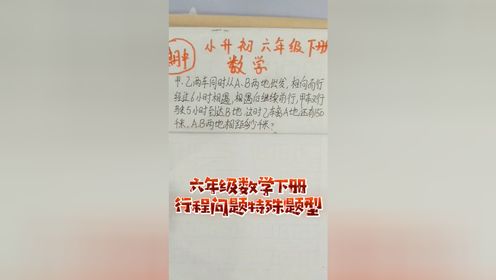 期中
小升初六年级下册
数学
甲、乙两车同时从A、B两地出发,相向而行
经过6小时相遇,相遇后继续前行,甲车又行
驶5小时到达B地,这时乙车离A地还有50
千米,A、B两地相距多少千米?
六年级数学下册
行程问题特殊题型